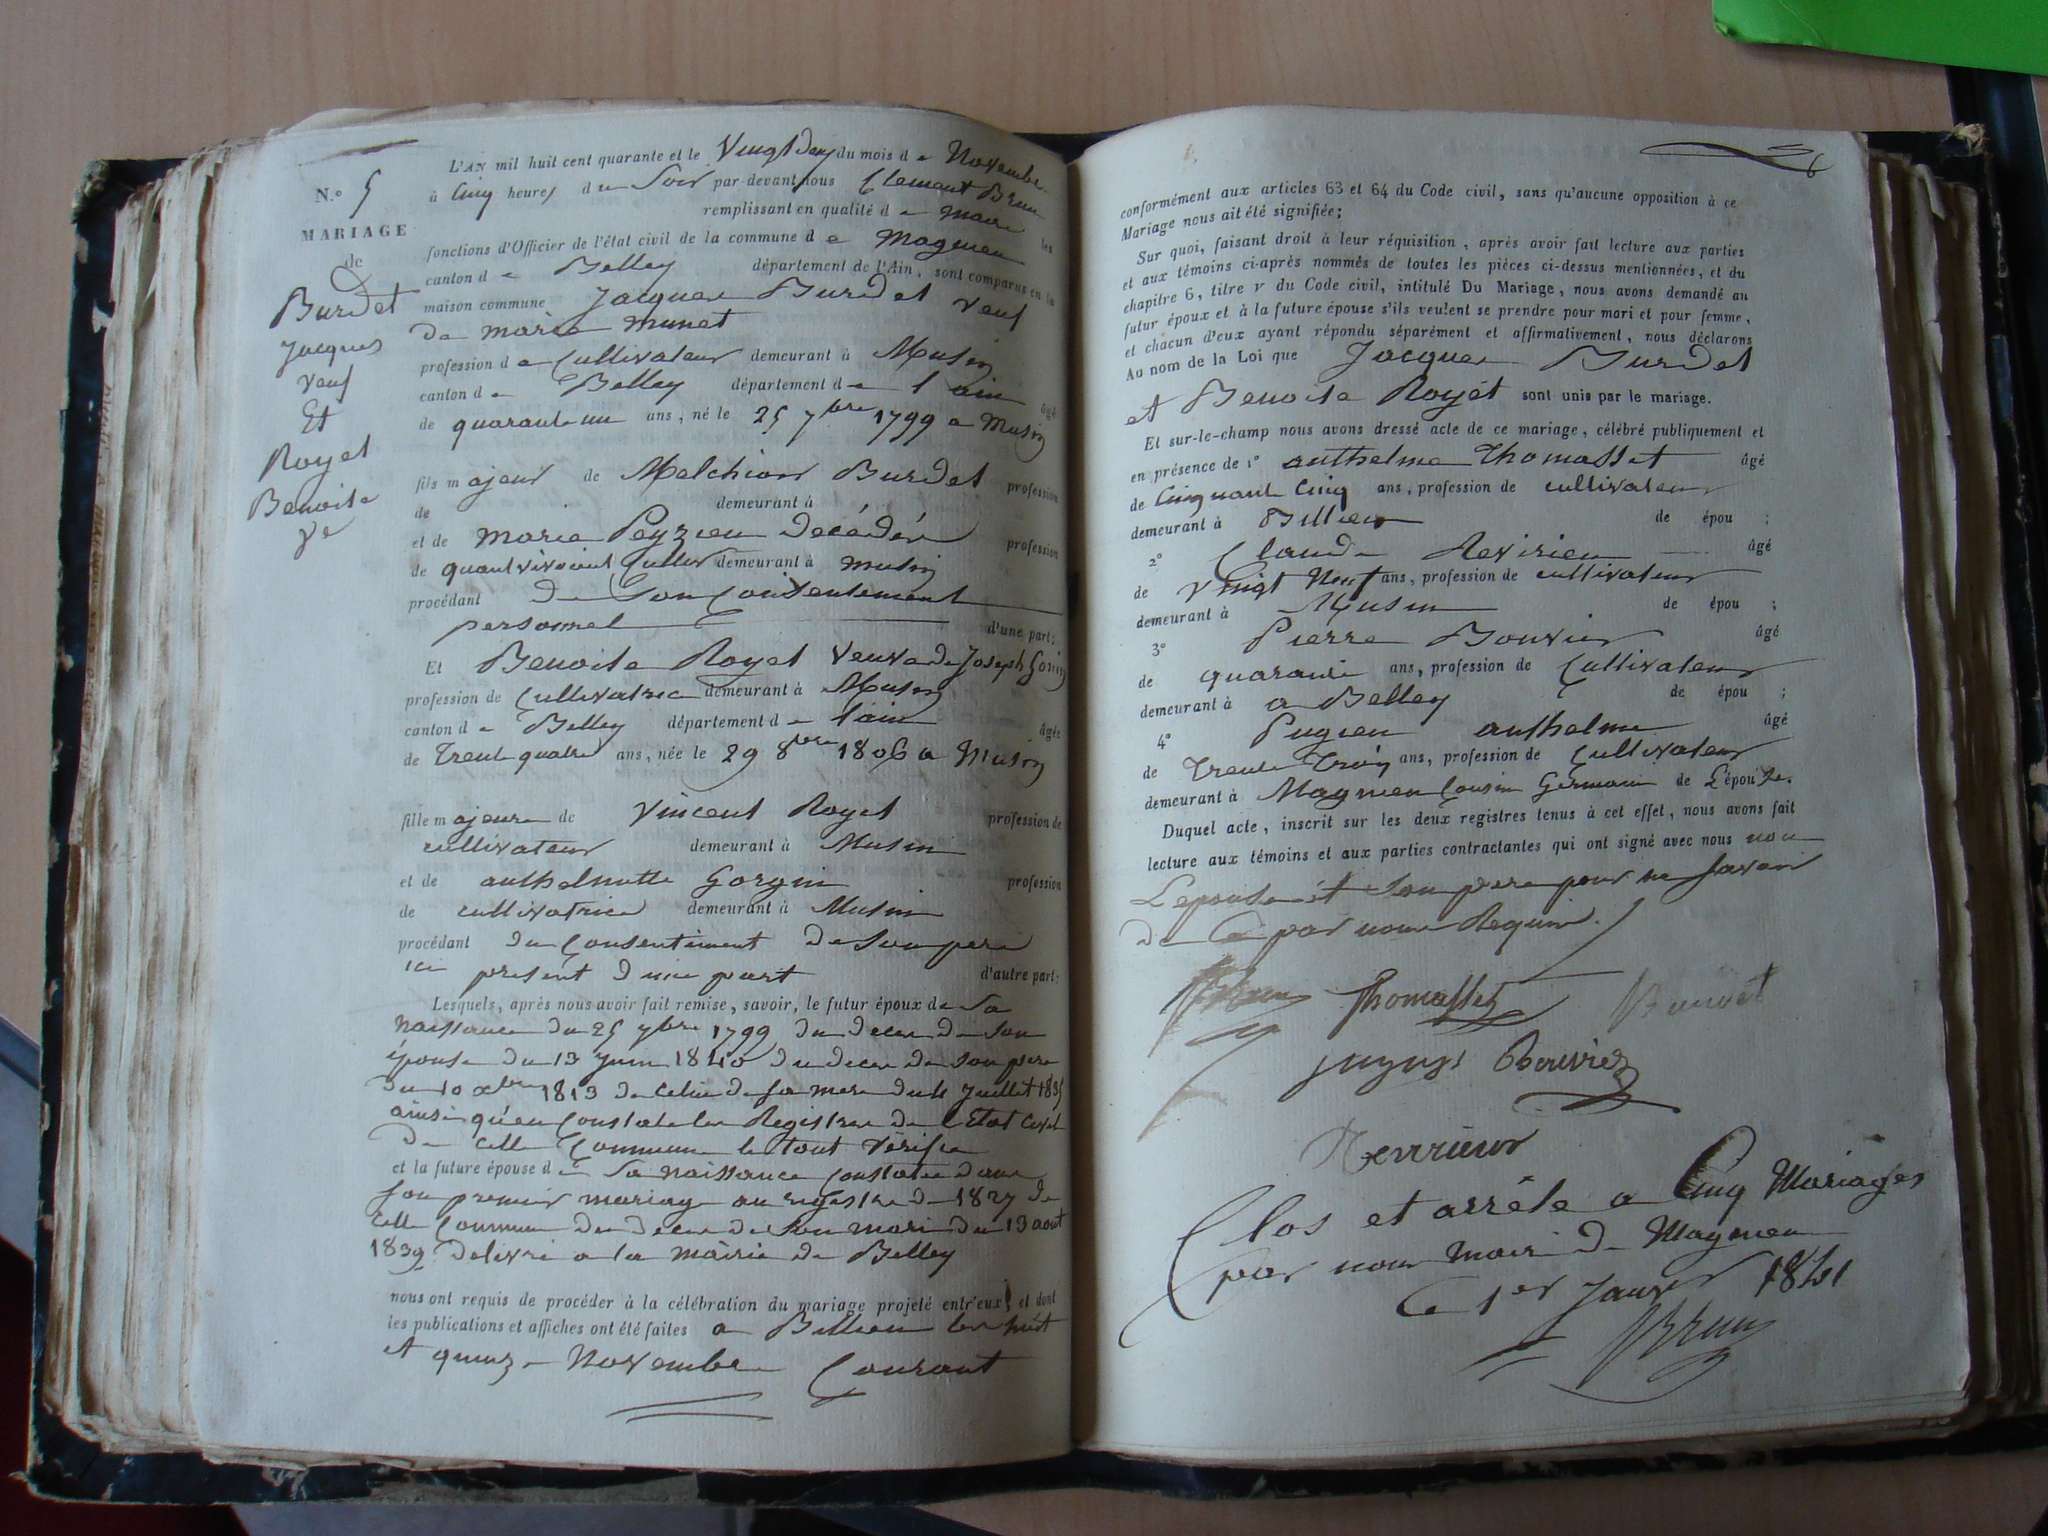 N.° 5
MARIAGE
de
Burdet
Jacques
veuf
Et
Royet
Benoite
Ve
L'AN mil huit cent quarante et le Vingt deux du mois de Novembre
à Cinq heures du Soir par-devant nous Clement Brun
remplissant en qualité de Maire les
fonctions d'Officier de l'état civil de la commune de Magnieu
canton de Belley département de l'Ain, sont comparus en la
maison commune Jacques Burdet veuf
de marie munet
profession de Cultivateur demeurant à Musin
canton de Belley département de l'ain âgé
de quarante un ans, né le 25 7bre 1799 a Musin
fils majeur de Melchior Burdet profession
de demeurant à
et de marie Peyzieu decédés profession
de quant vivoient Cultrs demeurant à musin
procédant de Son Consentement
personnel d'une part;
Et Benoite Royet Veuve de Joseph Gonin
profession de Cultivatrice demeurant à Musin
canton de Belley département de l'ain âgée
de Trente quatre ans, née le 29 8bre 1806 a Musin
fille majeure de Vincent Royet profession de
cultivateur demeurant à Musin
et de anthelmette Gorgin profession
de cultivatrice demeurant à Musin
procédant du Consentement de Son pere
ici présent d'une part d'autre part;
Lesquels, après nous avoir fait remise, savoir, le futur époux de Sa
Naissance du 25 7bre 1799 du deces de son
épouse du 13 Juin 1840 du deces de son pere
du 10 xbre 1813 de celui de sa mere du 4 Juillet 1835
ainsi qu'en Constate les Registres de l'Etat Civil
de cette Commune le tout vérifié
et la future épouse de Sa naissance Constatée dans
Son premier mariage au registre de 1827 de
cette Commune du deces de Son mari du 13 aout
1839 delivré a la mairie de Belley
nous ont requis de procéder à la célébration du mariage projeté entr'eux, et dont
les publications et affiches ont été faites a Billieu les huit
et quinze Novembre Courant
conformément aux articles 63 et 64 du Code civil, sans qu'aucune opposition à ce
Mariage nous ait été signifiée;
Sur quoi, faisant droit à leur réquisition, après avoir fait lecture aux parties
et aux témoins ci-après nommés de toutes les pièces ci-dessus mentionnées, et du
chapitre 6, titre V du Code civil, intitulé Du Mariage, nous avons demandé au
futur époux et à la future épouse s'ils veulent se prendre pour mari et pour femme,
et chacun d'eux ayant répondu séparément et affirmativement, nous déclarons
Au nom de la Loi que Jacques Burdet
et Benoite Royet sont unis par le mariage.
Et sur-le-champ nous avons dressé acte de ce mariage, célébré publiquement et
en présence de 1° anthelme Thomasset âgé
de Cinquante Cinq ans, profession de cultivateur
demeurant à Billieu de épou ;
2° Claude Revirieu âgé
de Vingt Neuf ans, profession de cultivateur
demeurant à Musin de épou ;
3° Pierre Bouvier âgé
de quarante ans, profession de Cultivateur
demeurant à a Belley de épou ;
4° Pugieu anthelme âgé
de Trente Trois ans, profession de Cultivateur
demeurant à Magnieu Cousin Germain de L'épouse.
Duquel acte, inscrit sur les deux registres tenus à cet effet, nous avons fait
lecture aux témoins et aux parties contractantes qui ont signé avec nous non
L'epouse et Son pere pour ne Savoir
de Ce par nous Requis.
Brun Thomasset Burdet
Bouvier
Clos et arrêté a Cinq Mariages
par nous Maire de Magnieu
Ce 1er Janvier 1841
Brun